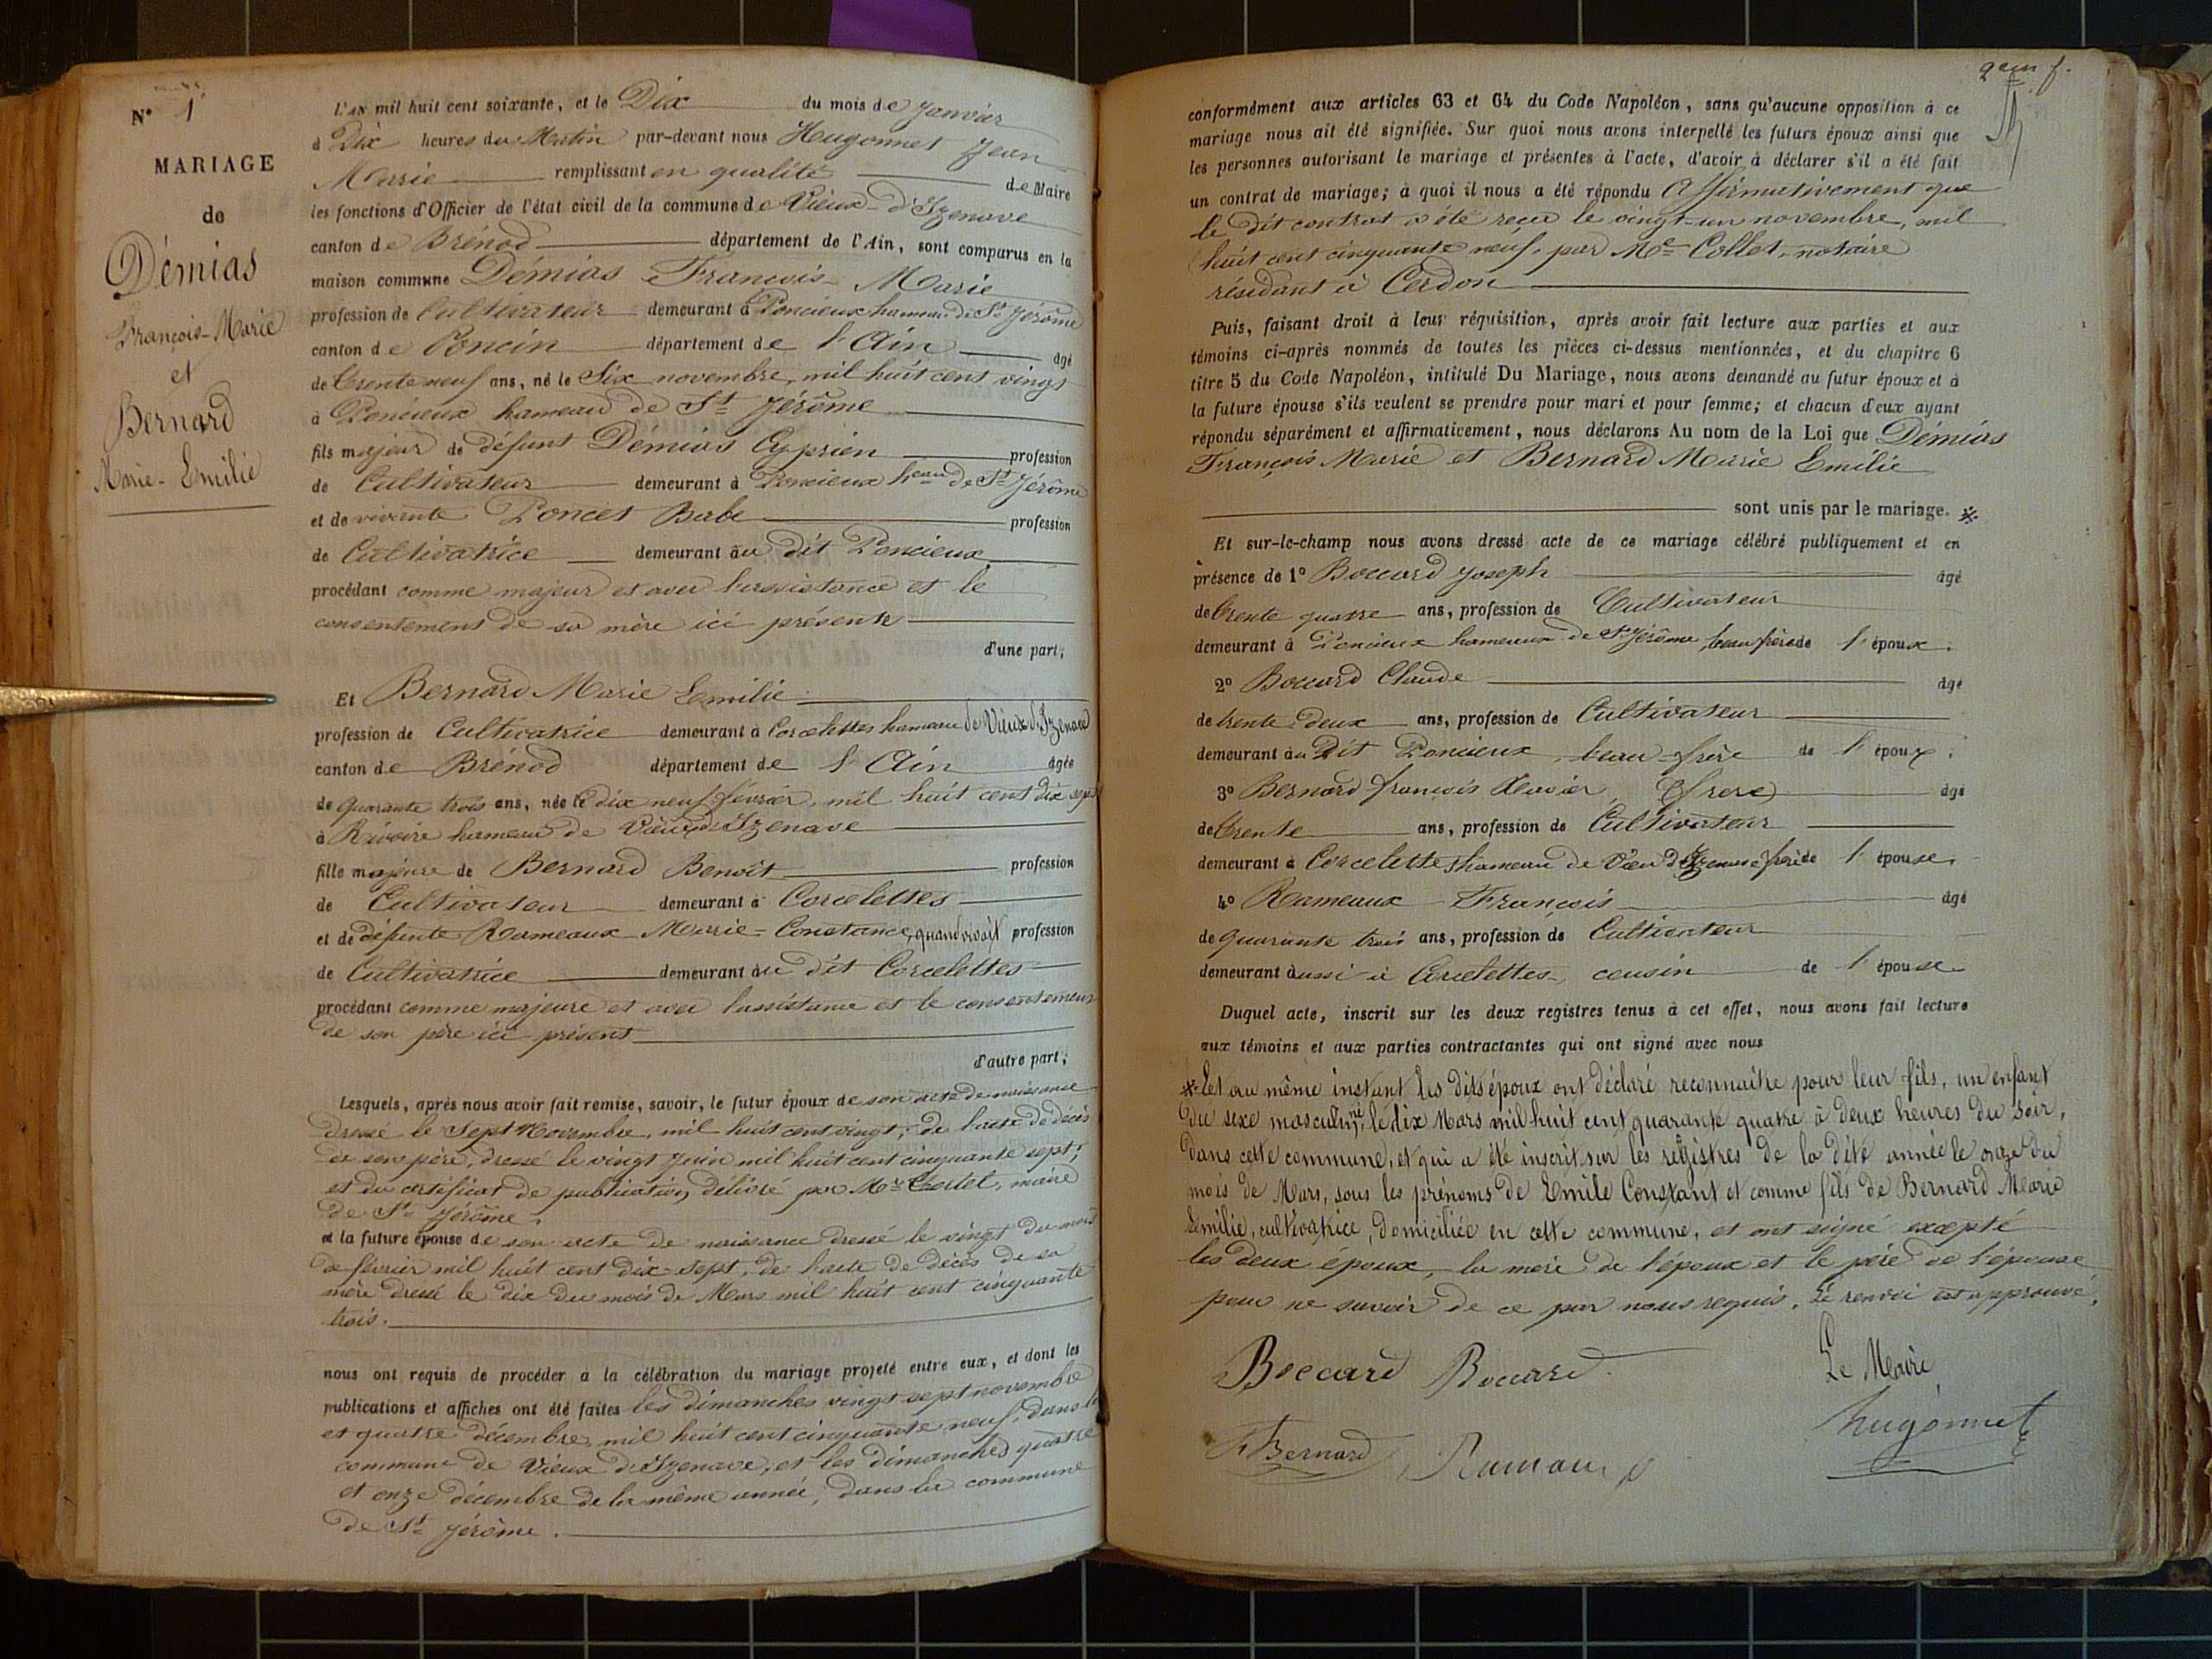 N° 1
MARIAGE
de
Démias
François-Marie
et
Bernard
Marie-Emilie
L'AN mil huit cent soixante, et le Dix du mois de Janvier
à Dix heures du Matin par-devant nous Hugonnet Jean
Marie remplissant en qualité de Maire
les fonctions d'Officier de l'état civil de la commune de Vieux-d'Izenave
canton de Brénod département de l'Ain, sont comparus en la
maison commune Démias François-Marie
profession de Cultivateur demeurant à Poncieux hameau de St Jérôme
canton de Poncin département de l'Ain âgé
de trente neuf ans, né le Six novembre, mil huit cent vingt
à Poncieux hameau de St Jérôme
fils majeur de défunt Démias Cyprien profession
de Cultivateur demeurant à Poncieux heau de St Jérôme
et de vivante Poncet Barbe profession
de Cultivatrice demeurant au dit Poncieux
procédant comme majeur et avec l'assistance et le
consentement de sa mère ici présente
d'une part;
Et Bernard Marie Emilie
profession de Cultivatrice demeurant à Corcelettes hameau de Vieux d'Izenave
canton de Brénod département de l'Ain âgée
de quarante trois ans, née le dix neuf février, mil huit cent dix sept
à Rivoire hameau de Vieux d'Izenave
fille majeure de Bernard Benoît profession
de Cultivateur demeurant à Corcelettes
et de défunte Rameaux Marie-Constance, quand vivait profession
de Cultivatrice demeurant au dit Corcelettes
procédant comme majeure et avec l'assistance et le consentement
de son père ici présent
d'autre part;
Lesquels, après nous avoir fait remise, savoir, le futur époux de son acte de naissance
dressé le Sept Novembre, mil huit cent vingt; de l'acte de décès
de son père, dressé le vingt Juin mil huit cent cinquante sept;
et du certificat de publication, délivré par Mr maire
de St Jérôme.
et la future épouse de son acte de naissance dressé le vingt du mois
de février mil huit cent dix-sept, de l'acte de décès de sa
mère dressé le dix du mois de Mars mil huit cent cinquante
trois.
nous ont requis de procéder à la célébration du mariage projeté entre eux, et dont les
publications et affiches ont été faites les dimanches vingt sept novembre
et quatre décembre, mil huit cent cinquante neuf, dans la
commune de Vieux d'Izenave, et les dimanches quatre
et onze décembre de la même année, dans la commune
de St Jérôme.
2em f.
conformément aux articles 63 et 64 du Code Napoléon, sans qu'aucune opposition à ce
mariage nous ait été signifiée. Sur quoi nous avons interpellé les futurs époux ainsi que
les personnes autorisant le mariage et présentes à l'acte, d'avoir à déclarer s'il a été fait
un contrat de mariage; à quoi il nous a été répondu Affirmativement que
le dit contrat a été reçu le vingt-un novembre, mil
huit cent cinquante neuf, par Me Collet, notaire
résidant à Cerdon
Puis, faisant droit à leur réquisition, après avoir fait lecture aux parties et aux
témoins ci-après nommés de toutes les pièces ci-dessus mentionnées, et du chapitre 6
titre 5 du Code Napoléon, intitulé Du Mariage, nous avons demandé au futur époux et à
la future épouse s'ils veulent se prendre pour mari et pour femme; et chacun d'eux ayant
répondu séparément et affirmativement, nous déclarons Au nom de la Loi que Démias
François Marie et Bernard Marie Emilie
sont unis par le mariage. *
Et sur-le-champ nous avons dressé acte de ce mariage célébré publiquement et en
présence de 1° Boccard Joseph âgé
de trente quatre ans, profession de Cultivateur
demeurant à Poncieux hameaux de St Jérôme, beau frère de l'époux.
2° Boccard Claude âgé
de trente-deux ans, profession de Cultivateur
demeurant au Dit Poncieux, beau-frère de l'époux;
3° Bernard françois Xavier, (frere) âgé
de trente ans, profession de Cultivateur
demeurant à Corcelettes hameau de Vieu d'Izenave frère de l'épouse.
4° Rameaux François âgé
de quarante trois ans, profession de Cultivateur
demeurant aussi à Corcelettes, cousin de l'épouse
Duquel acte, inscrit sur les deux registres tenus à cet effet, nous avons fait lecture
aux témoins et aux parties contractantes qui ont signé avec nous
* Et au même instant les dits époux ont déclaré reconnaitre pour leur fils, un enfant
du sexe masculin, né le dix Mars mil huit cent quarante quatre à deux heures du soir,
dans cette commune, et qui a été inscrit sur les registres de la dite année le onze du
mois de Mars, sous les prénoms de Emile Constant et comme fils de Bernard Marie
Emilie, cultivatrice, domiciliée en cette commune, et ont signé excepté
les deux époux, la mère de l'époux et le père de l'épouse
pour ne savoir de ce par nous requis. Le renvoi est approuvé.
Boccard Boccard
Le Maire
F Bernard Rameaux
hugonnet